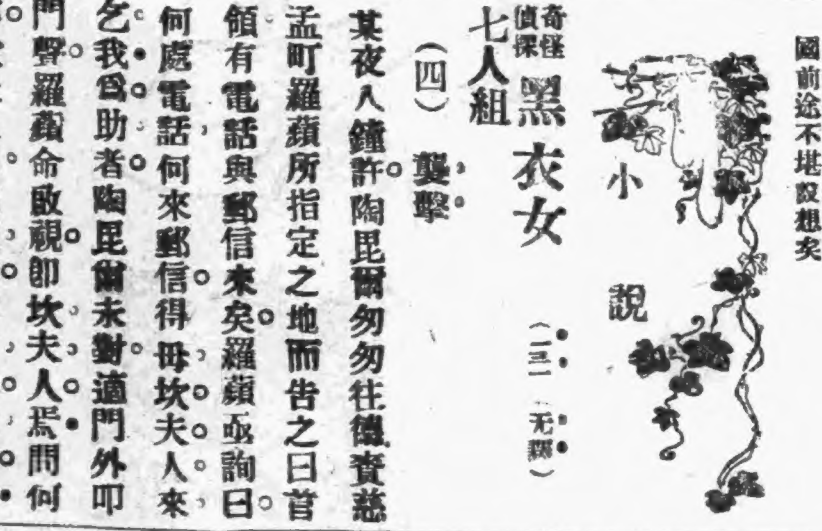 國前途不堪設想矣
小說
奇怪偵探
黑衣女
七人組
(四) 襲擊
某夜八鐘許陶毘爾匆匆往德賚慈
孟町羅蘋所指定之地而告之曰首
領有電話與郵信來矣羅蘋亟詢曰
何處電話何來郵信得毋坎夫人來
乞我爲助者陶毘爾未對適門外叩
門聲羅蘋命啟視卽坎夫人焉問何